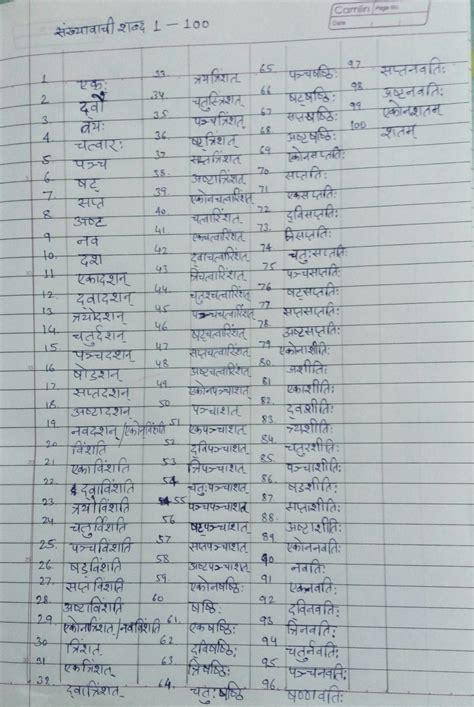 Camlin Page No.
Date
संख्यावाची शब्द 1 - 100
1 एकः
2 द्वौ
3 त्रयः
4 चत्वारः
5 पञ्च
6 षट्
7 सप्त
8 अष्ट
9 नव
10. दश
11 एकादशन्
12 द्वादशन्
13 त्रयोदशन्
14. चतुर्दशन्
15. पञ्चदशन्
16 षोडशन्
17 सप्तदशन्
18 अष्टादशन्
19 नवदशन्/एकोनविंशी
20 विंशति
21 एकाविंशति
22 द्वाविंशति
23 त्रयोविंशति
24 चतुर्विंशति
25. पञ्चविंशति
26. षड्विंशति
27. सप्तविंशति
28 अष्टाविंशति
29 एकोनत्रिंशत्/नवविंशति
30 त्रिंशत्
31 एकत्रिंशत्
32 द्वात्रिंशत्
33. त्रयत्रिंशत्
34 चतुस्त्रिंशत्
35 पञ्चत्रिंशत्
36 षट्त्रिंशत्
37 सप्तत्रिंशत्
38. अष्टात्रिंशत्
39. एकोनचत्वारिंशत्
40 चत्वारिंशत्
41 एकचत्वारिंशत्
42 द्वाचत्वारिंशत्
43 त्रिचत्वारिंशत्
44 चतुश्चत्वारिंशत्
45 पञ्चचत्वारिंशत्
46 षट्चत्वारिंशत्
47 सप्तचत्वारिंशत्
48 अष्टचत्वारिंशत्
49. एकोनपञ्चाशत्
50 पञ्चाशत्
51 एकपञ्चाशत्
52 द्विपञ्चाशत्
53 त्रिपञ्चाशत्
54 चतुःपञ्चाशत्
55 पञ्चपञ्चाशत्
56 षट्पञ्चाशत्
57 सप्तपञ्चाशत्
58 अष्टपञ्चाशत्
59. एकोनषष्ठिः
60 षष्ठिः
61. एकषष्ठिः
62 द्विषष्ठिः
63. त्रिषष्ठिः
64. चतुःषष्ठि
65 पञ्चषष्ठिः
66 षट्षष्ठिः
67 सप्तषष्ठिः
68 अष्टषष्ठिः
69 एकोनसप्ततिः
70 सप्ततिः
71 एकसप्ततिः
72 द्विसप्ततिः
73. त्रिसप्ततिः
74 चतुःसप्ततिः
75 पञ्चसप्ततिः
76 षट्सप्ततिः
77 सप्तसप्ततिः
78 अष्टसप्ततिः
79 एकोनाशीतिः
80 अशीतिः
81 एकाशीतिः
82 द्वशीतिः
83 त्र्यशीतिः
84 चतुरशीतिः
85. पञ्चाशीतिः
86. षडशीतिः
87 सप्ताशीतिः
88. अष्टाशीतिः
89. एकोननवतिः
90 नवतिः
91 एकनवतिः
92 द्विनवतिः
93 त्रिनवतिः
94 चतुर्नवतिः
95 पञ्चनवतिः
96. षण्णवतिः
97 सप्तनवतिः
98 अष्टनवतिः
99 एकोनशतम्
100 शतम्